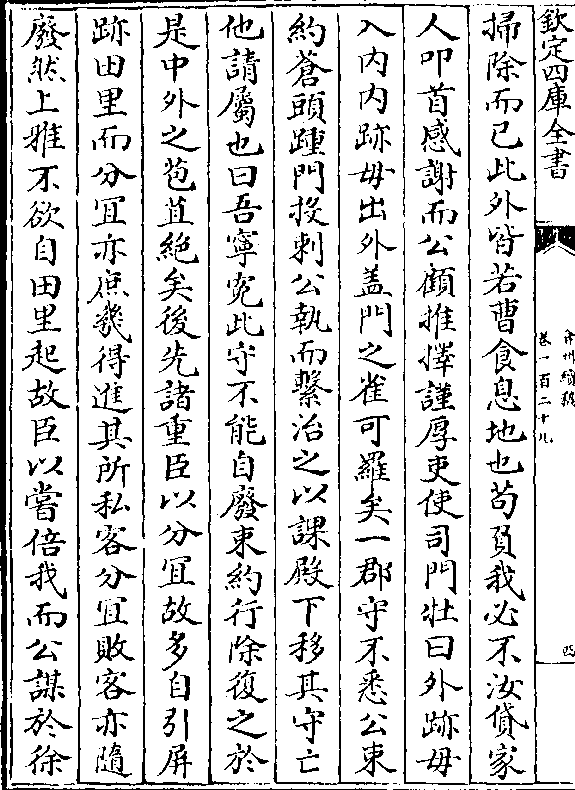 欽定四庫全書
弇州續稿
卷一百二十九
四
掃除而已此外皆若曹食息地也茍負我必不汝貸家
人叩首感謝而公顧推擇謹厚吏使司門壯曰外跡毋
入内内跡毋出外盖門之雀可羅矣一郡守不悉公東
約蒼頭踵門投刺公執而繫治之以課殿下移其守亡
他請屬也曰吾寧寛此守不能自廢束約行除復之於
是中外之苞苴絶矣後先諸重臣以分冝故多自引屏
跡田里而分冝亦庶幾得進其所私客分冝敗客亦隨
廢然上雅不欲自田里起故臣以嘗倍我而公謀於徐